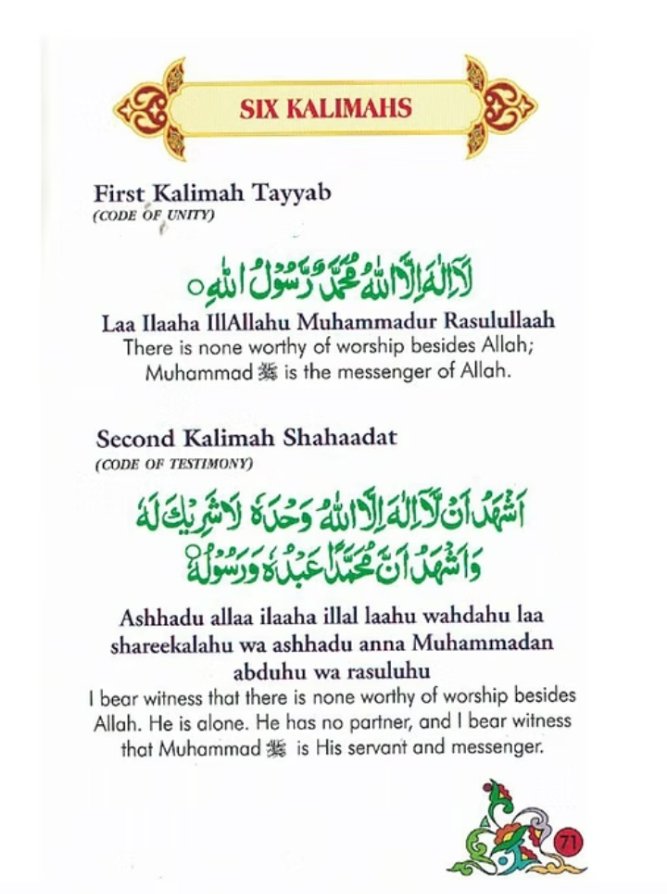 SIX KALIMAHS
First Kalimah Tayyab
(CODE OF UNITY)
لَآ اِلٰهَ اِلَّا اللّٰهُ مُحَمَّدٌ رَّسُوْلُ اللّٰهِ○
Laa Ilaaha IllAllahu Muhammadur Rasulullaah
There is none worthy of worship besides Allah;
Muhammad ﷺ is the messenger of Allah.
Second Kalimah Shahaadat
(CODE OF TESTIMONY)
اَشْهَدُ اَنْ لَّآ اِلٰهَ اِلَّا اللّٰهُ وَحْدَهٗ لَا شَرِيْكَ لَهٗ
وَاَشْهَدُ اَنَّ مُحَمَّدًا عَبْدُهٗ وَرَسُوْلُهٗ○
Ashhadu allaa ilaaha illal laahu wahdahu laa
shareekalahu wa ashhadu anna Muhammadan
abduhu wa rasuluhu
I bear witness that there is none worthy of worship besides
Allah. He is alone. He has no partner, and I bear witness
that Muhammad ﷺ is His servant and messenger.
71